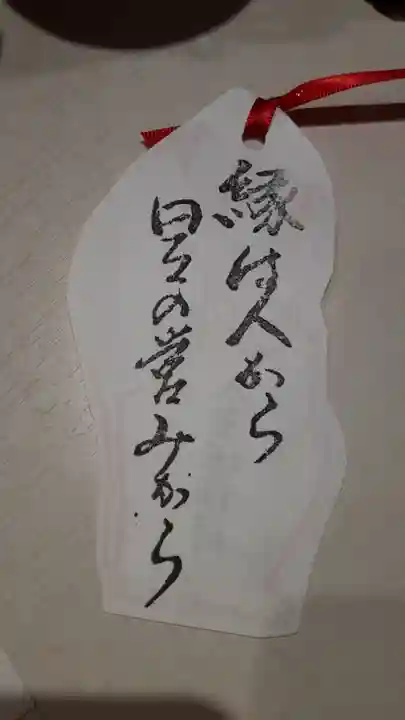 縁は人から
日々の営みから